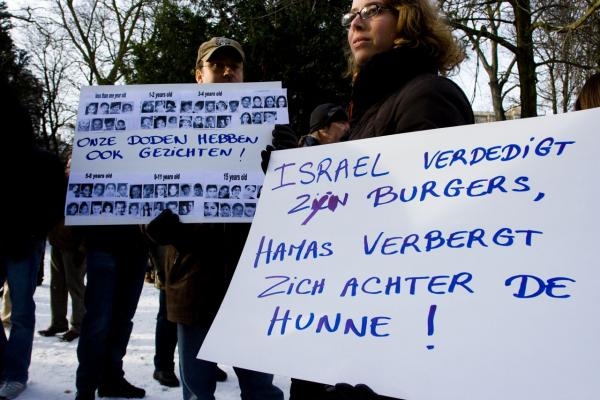 less than one year old
1-2 years old
3-4 years old
ONZE DODEN HEBBEN
OOK GEZICHTEN !
5-8 years old
9-11 years old
15 years old
ISRAEL VERDEDIGT
ZIJN BURGERS,
HAMAS VERBERGT
ZICH ACHTER DE
HUNNE !